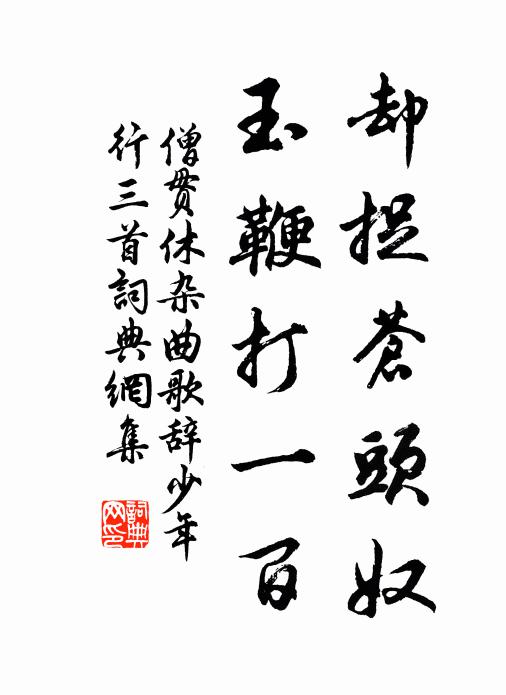 却捉蒼頭奴
玉鞭打一百
僧贯休杂曲歌辞少年
行三首詞典網集
詞典
网印